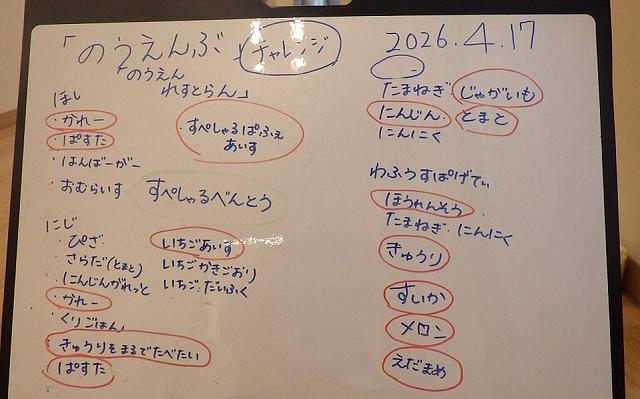 「のうえんぶ」チャレンジ
「のうえん
れすとらん」
ほし
・かれー
・ぱすた
・はんばーがー
・おむらいす
・すぺしゃるぱふぇ
あいす
すぺしゃるべんとう
にじ
・ぴざ
・さらだ(とまと)
・にんじんがれっと
・かれー
・くりごはん
・きゅうりをまるでたべたい
・ぱすた
いちごあいす
いちごかきごおり
いちごだいふく
2026.4.17
たまねぎ じゃがいも
にんじん・ とまと
にんにく
わふうすぱげてぃ
ほうれんそう
たまねぎ・にんにく
きゅうり
すいか
メロン
えだまめ